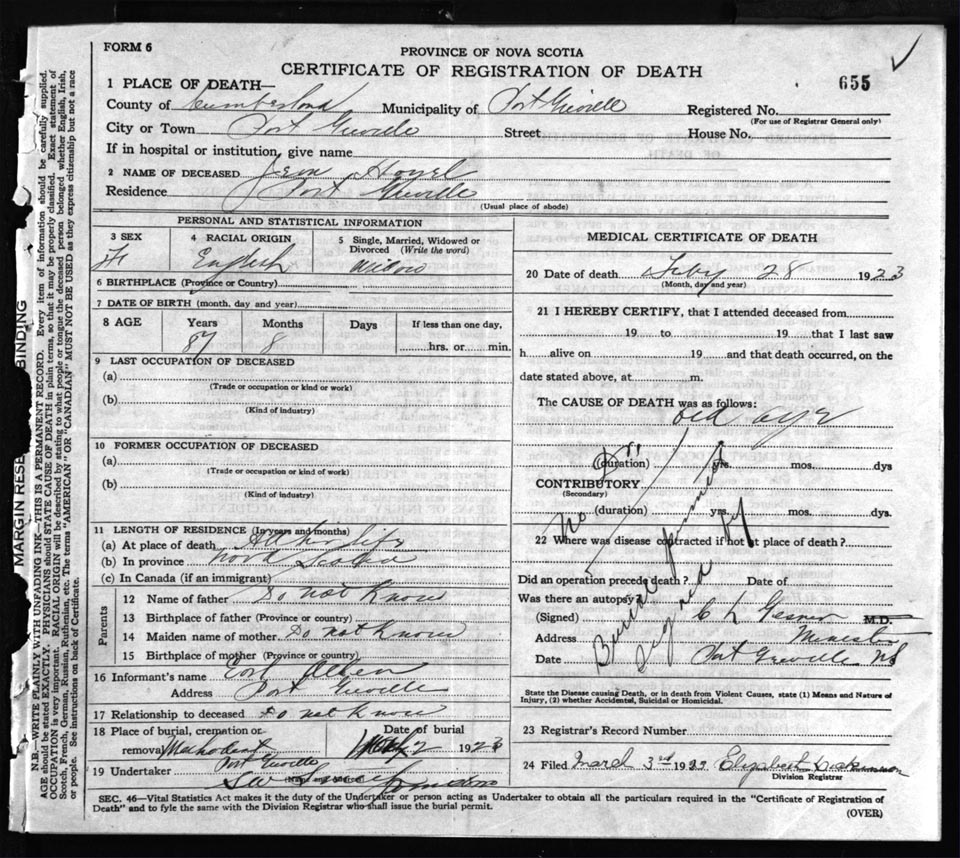 FORM 6
PROVINCE OF NOVA SCOTIA
CERTIFICATE OF REGISTRATION OF DEATH
655
1 PLACE OF DEATH—
County of Cumberland Municipality of Port Greville Registered No.
(For use of Registrar General only)
City or Town Port Greville Street House No.
If in hospital or institution, give name
2 NAME OF DECEASED
Residence Port Greville
(Usual place of abode)
PERSONAL AND STATISTICAL INFORMATION
3 SEX 4 RACIAL ORIGIN 5 Single, Married, Widowed or Divorced (Write the word)
F English Widow
6 BIRTHPLACE (Province or Country)
7 DATE OF BIRTH (month, day and year)
8 AGE Years Months Days If less than one day,
87 8 hrs. or min.
9 LAST OCCUPATION OF DECEASED
(a)
(Trade or occupation or kind or work)
(b)
(Kind of industry)
10 FORMER OCCUPATION OF DECEASED
(a)
(Trade or occupation or kind or work)
(b)
(Kind of industry)
11 LENGTH OF RESIDENCE (In years and months)
(a) At place of death All her life
(b) In province Nova Scotia
(c) In Canada (if an immigrant)
Parents
12 Name of father Do not Know
13 Birthplace of father (Province or country)
14 Maiden name of mother Do not Know
15 Birthplace of mother (Province or country)
16 Informant's name
Address Port Greville
17 Relationship to deceased do not know
18 Place of burial, cremation or removal Methodist Port Greville
Date of burial 2 1923
19 Undertaker
MEDICAL CERTIFICATE OF DEATH
20 Date of death Feby 28 1923
(Month, day and year)
21 I HEREBY CERTIFY, that I attended deceased from
19 to 19 that I last saw
h alive on 19 and that death occurred, on the
date stated above, at m.
The CAUSE OF DEATH was as follows:
old age
(duration) yrs. mos. dys
CONTRIBUTORY
(Secondary)
(duration) yrs. mos. dys.
No Dr.
Burial permit
signed by
22 Where was disease contracted if not at place of death?
Did an operation precede death? Date of
Was there an autopsy
(Signed) C L Gesner M.D.
Address Minister
Date Port Greville NS
State the Disease causing Death, or in death from Violent Causes, state (1) Means and Nature of
Injury, (2) whether Accidental, Suicidal or Homicidal.
23 Registrar's Record Number
24 Filed March 3rd 19 Elizabeth Dickinson
Division Registrar
SEC. 46—Vital Statistics Act makes it the duty of the Undertaker or person acting as Undertaker to obtain all the particulars required in the "Certificate of Registration of
Death" and to fyle the same with the Division Registrar who shall issue the burial permit.
(OVER)
MARGIN RESE BINDING
N.B.—WRITE PLAINLY WITH UNFADING INK—THIS IS A PERMANENT RECORD. Every item of information should be carefully supplied.
AGE should be stated EXACTLY. PHYSICIANS should STATE CAUSE OF DEATH in plain terms, so that it may be properly classified. Exact statement of
OCCUPATION is very important. RACIAL ORIGIN will be described by stating to what people or tongue the deceased person belonged whether English, Irish,
Scotch, French, German, Russian, Ruthenian, etc. The terms "AMERICAN" OR "CANADIAN" MUST NOT BE USED as they express citizenship but not a race
or people. See instructions on back of Certificate.